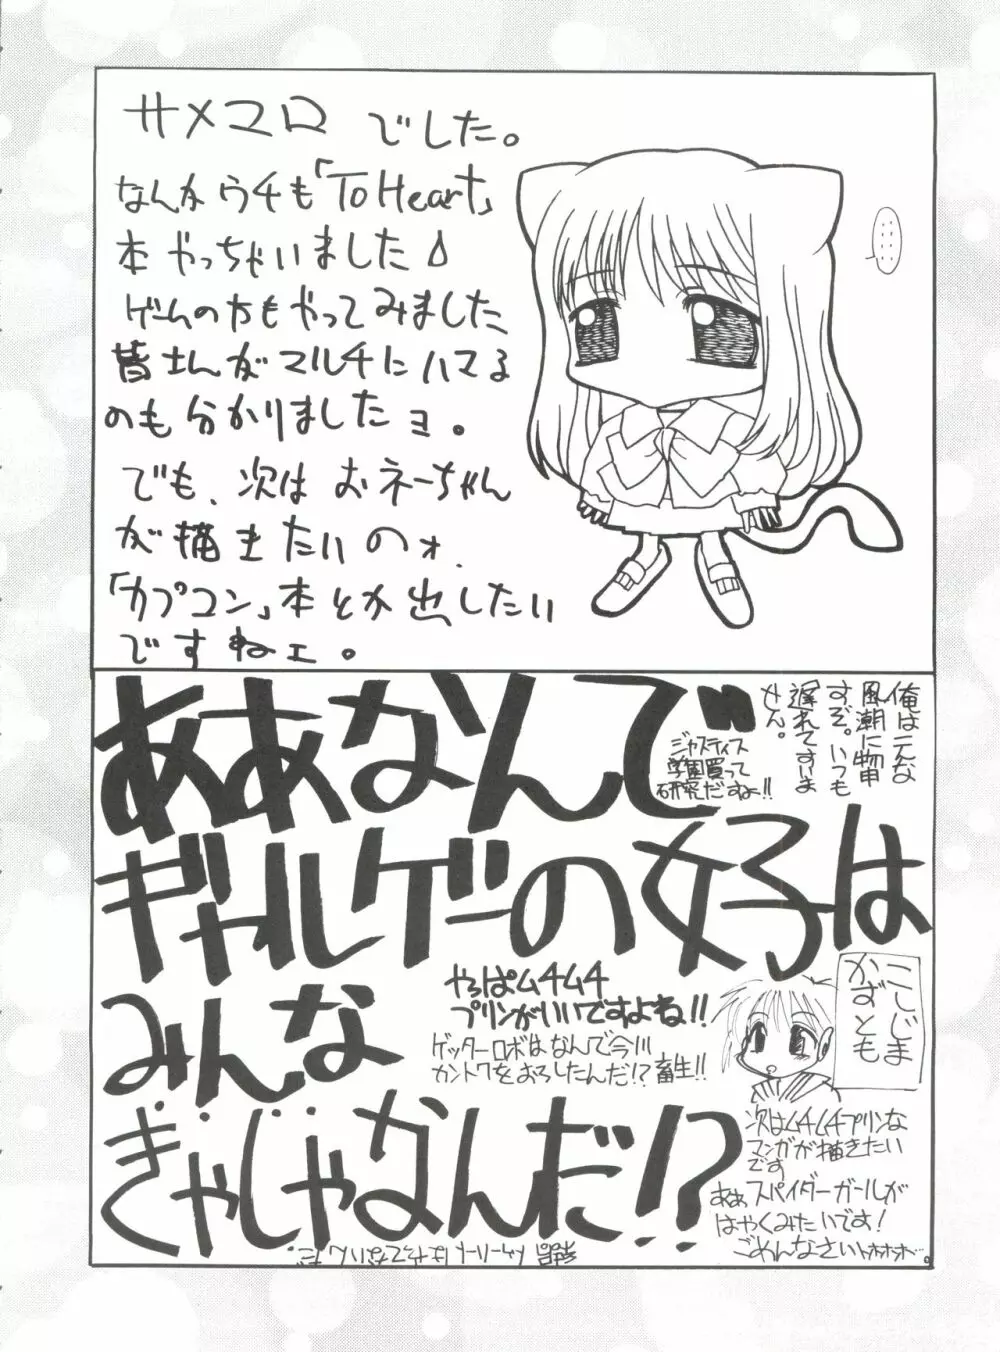 サメマロ でした。
なんかウチも「To Heart」
本やっちゃいました
ゲームの方もやってみました
皆さんがマルチにハマる
のも分かりましたョ。
でも、次は おネーちゃん
が描きたいのォ、
「カプコン」本とか出したい
ですねェ。
俺はこんな
風潮に物申
すぞ。いつも
遅れてすいま
せん。
ジャスティス
学園買って
研究だすね!!
ああなんで
ギャルゲーの女子は
みんな
きゃしゃなんだ!?
やっぱムチムチ
プリンがいいですよね!!
ゲッターロボはなんで今川
カントクをおろしたんだ!?畜生!!
こじま
かずとも
次はムチムチプリンな
マンガが描きたい
です
ああスパイダーガールが
はやくみたいです!
ごめんなさいトホホホ…。